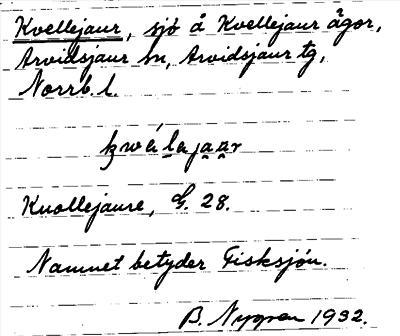 Kvellejaur, sjö å Kvellejaur ägor,
Arvidsjaur sn, Arvidsjaur tg,
Norrb. l.
kwélejaar
Knollejaure, G. 28.
Namnet betyder Fisksjön.
B. Nygren 1932.